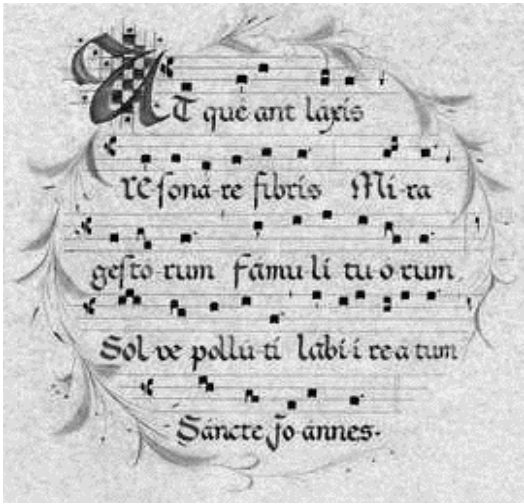 UT qué ant láxis
REsoná-re fibris Mí-ra
gesto-rum Fámu li tu o rum
Sol ve pollú-ti lábi-i re a tum
Sáncte Jo ánnes.